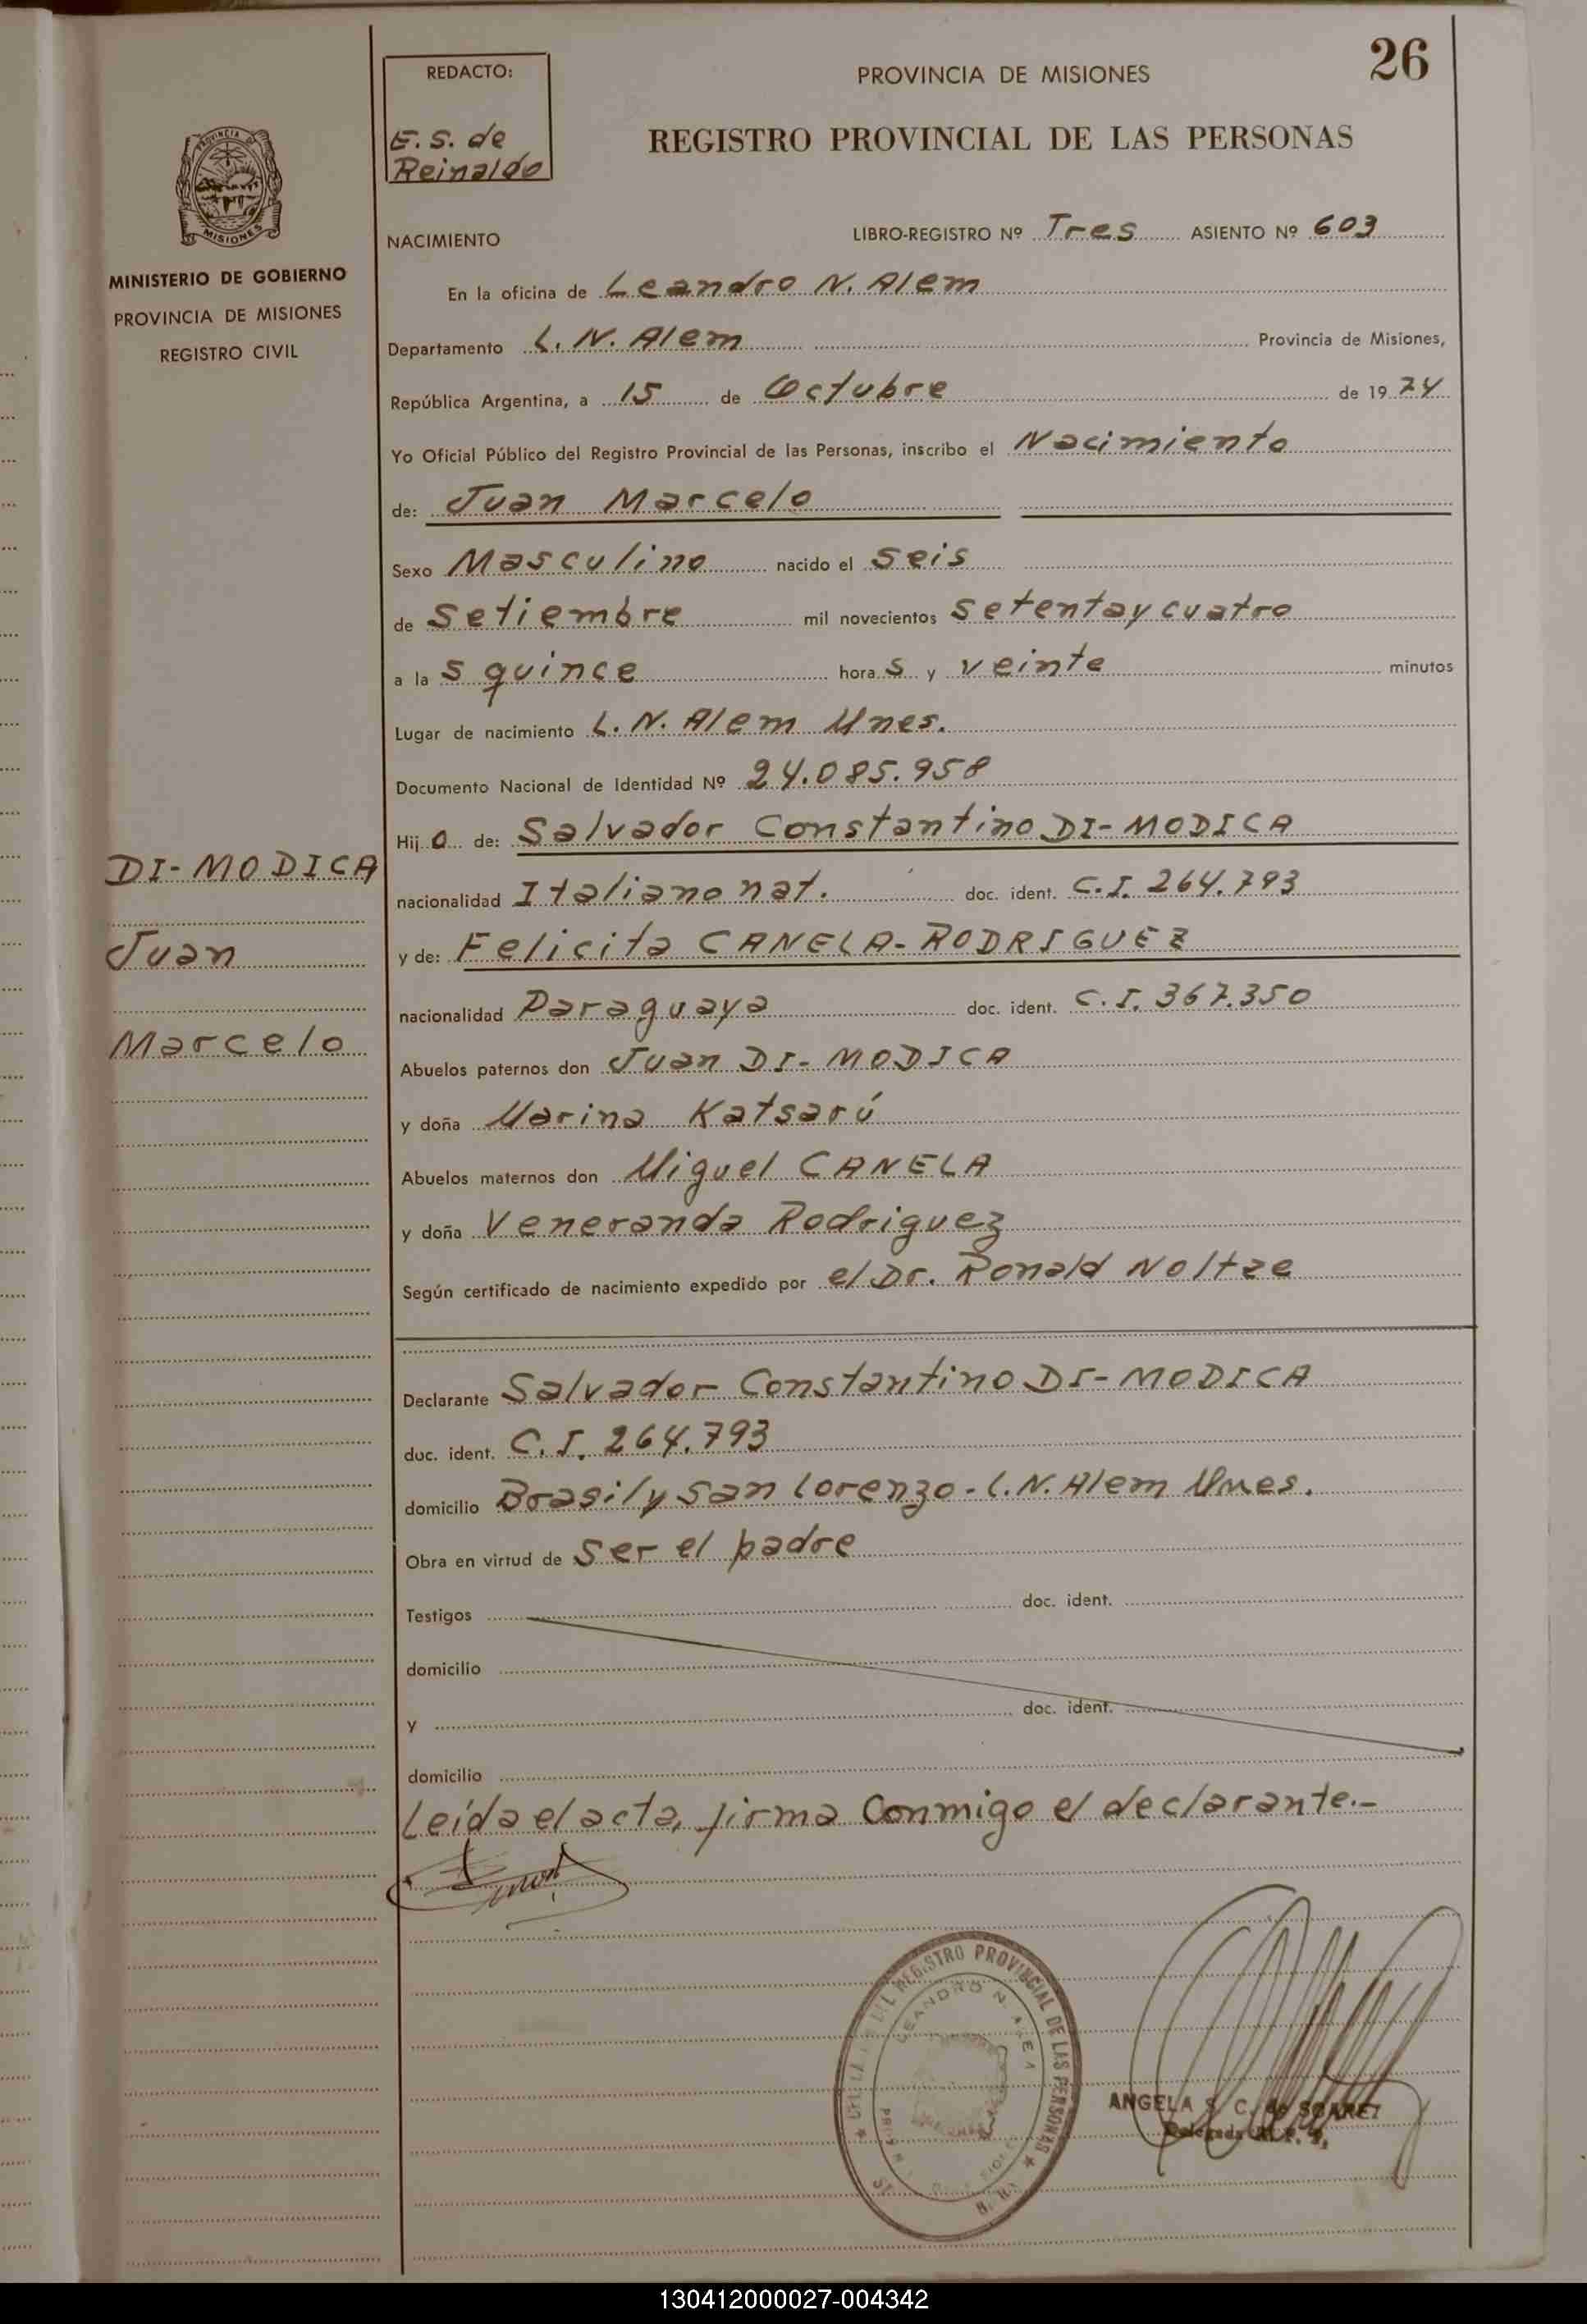 26
REDACTO:
E. S. de
Reinaldo
PROVINCIA DE MISIONES
REGISTRO PROVINCIAL DE LAS PERSONAS
PROVINCIA DE
MISIONES
MINISTERIO DE GOBIERNO
PROVINCIA DE MISIONES
REGISTRO CIVIL
NACIMIENTO LIBRO-REGISTRO Nº Tres ASIENTO Nº 603
En la oficina de Leandro N. Alem
Departamento L. N. Alem Provincia de Misiones,
República Argentina, a 15 de Octubre de 19 74
Yo Oficial Público del Registro Provincial de las Personas, inscribo el Nacimiento
de: Juan Marcelo
Sexo Masculino nacido el seis
de Setiembre mil novecientos setenta y cuatro
a la s quince hora s y veinte minutos
Lugar de nacimiento L. N. Alem Mnes.
Documento Nacional de Identidad Nº 24.085.958
Hij o de: Salvador Constantino DI-MODICA
DI-MODICA
nacionalidad Italiano nat. doc. ident. C.I. 264.793
Juan
y de: Felicita CANELA-RODRIGUEZ
nacionalidad Paraguaya doc. ident. C.I. 367.350
Marcelo
Abuelos paternos don Juan DI-MODICA
y doña Marina Katsarú
Abuelos maternos don Miguel CANELA
y doña Veneranda Rodriguez
Según certificado de nacimiento expedido por el Dr. Ronald Noltze
Declarante Salvador Constantino DI-MODICA
doc. ident. C.I. 264.793
domicilio Brasil y San Lorenzo - L.N. Alem Mnes.
Obra en virtud de Ser el padre
Testigos doc. ident.
domicilio
y doc. ident.
domicilio
Leída el acta, firma conmigo el declarante.-
REGISTRO PROVINCIAL DE LAS PERSONAS
LEANDRO N. ALEM
ANGELA S. C. de SOAREZ
Delegada R. P. P.
130412000027-004342